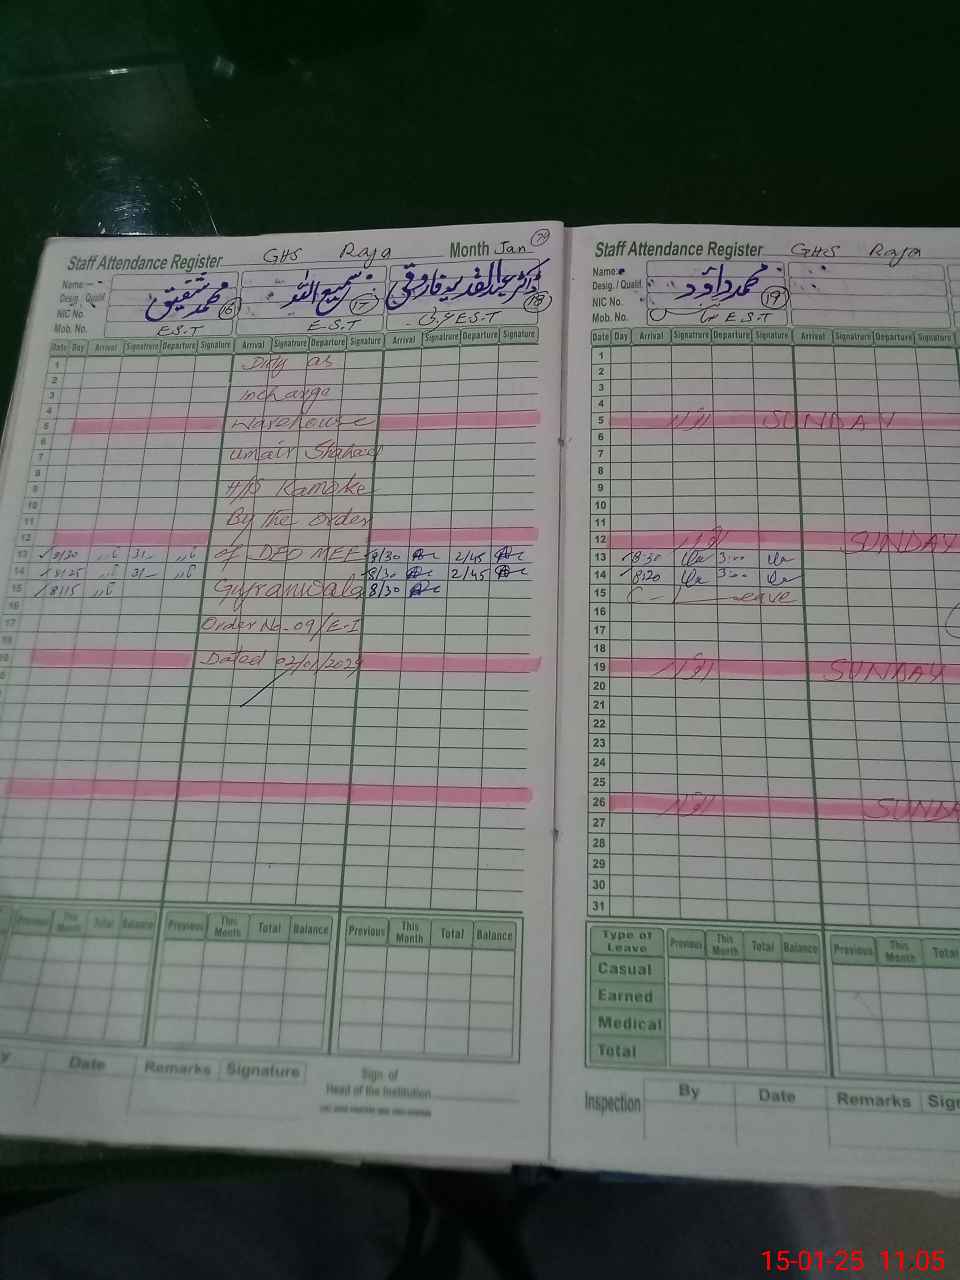 Staff Attendance Register GHS Raja Month Jan
Name
Desig. / Qualif.
NIC No.
Mob. No.
محمد شفیق 16 سمیع اللہ 17 ڈاکٹر عبدالقدیر فاروقی 18
E.S.T E-S-T E.S.T
Date Day Arrival Signatrure Departure Signature Arrival Signatrure Departure Signature Arrival Signatrure Departure Signature
1 Duty as
2
3 incharge
4
5 warehouse
6
7 Umair Shaheed
8
9 H/S Kamoke
10
11 By the order
12
13 8/30 of DEO MEE 8/30 2/45
14 8/25 8/30 2/45
15 8/15 Gujranwala 8/30
16
17 Order No-09/E-I
Dated 02/01/2024
Previous This Month Total Balance Previous This Month Total Balance Previous This Month Total Balance
Date Remarks Signature
Sign of
Head of the Institution
Staff Attendance Register GHS Raja
Name
Desig. / Qualif.
NIC No.
Mob. No.
محمد داؤد 19
E.S.T
Date Day Arrival Signatrure Departure Signature Arrival Signatrure Departure Signature
1
2
3
4
5 اتوار SUNDAY
6
7
8
9
10
11
12 اتوار SUNDAY
13 8:30 3:00
14 8:20 3:00
15 C-L-eave
16
17
18
19 اتوار SUNDAY
20
21
22
23
24
25
26 اتوار SUNDA
27
28
29
30
31
Type of Leave Previous This Month Total Balance Previous This Month Total
Casual
Earned
Medical
Total
Inspection By Date Remarks Sig
15-01-25 11:05